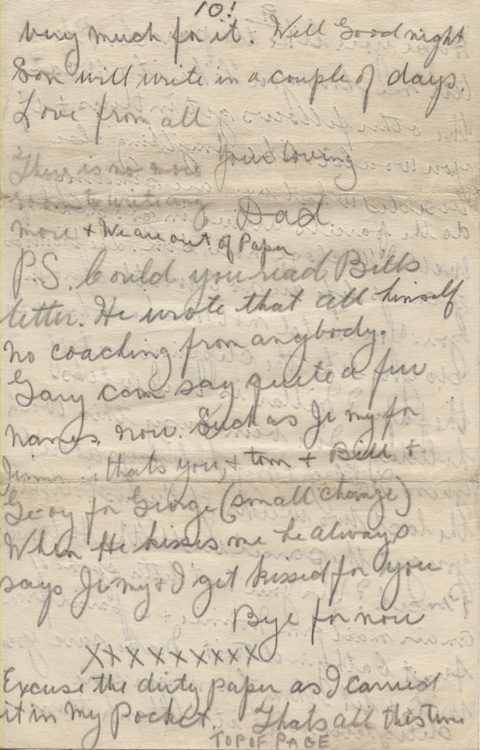 10!
very much for it. Well Goodnight
Son will write in a couple of days.
Love from all
Your loving
There is no more
room to write any
Dad
more + We are out of Paper
P.S. Could you read Bills
letter. He wrote that all himself
No coaching from anybody.
Gary can say quite a few
names now. Such as Jimy for
Jimmy thats you, + tom + Bill +
Geoy for George (small change)
When He kisses me he always
says Jimy + I get kissed for you
Bye for now
XXXXXXXXX
Excuse the dirty paper as I carried
it in My Pocket. Thats all this time
TOP OF PAGE